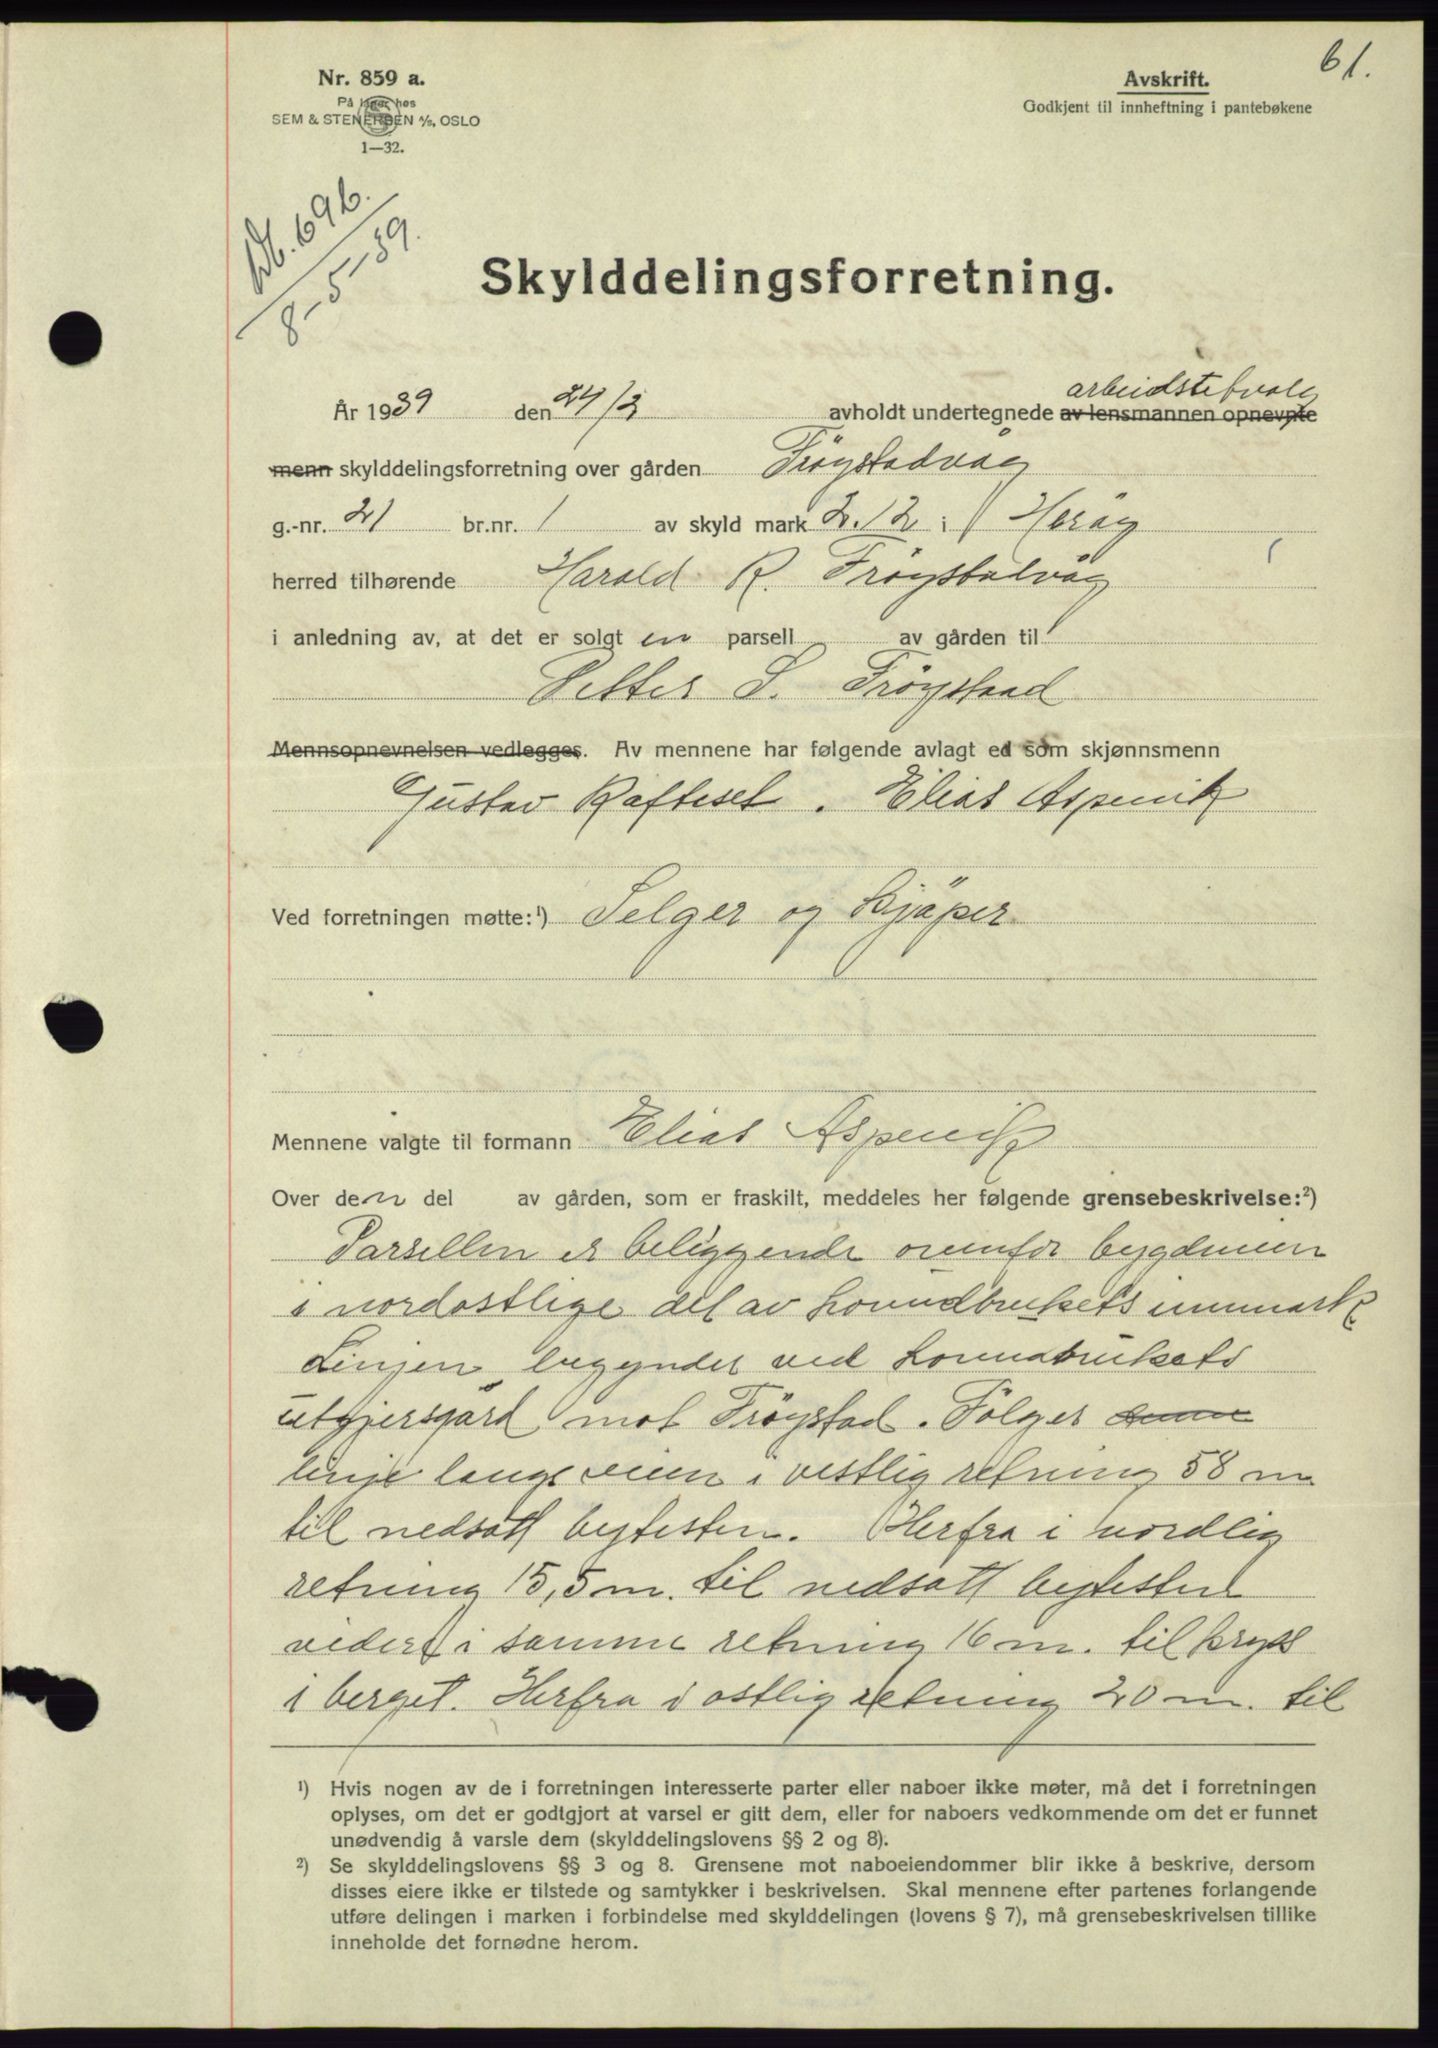 61.
Nr. 859 a.
På lager hos
SEM & STENERSEN A/S, OSLO
1—32.
Avskrift.
Godkjent til innheftning i pantebøkene
696.
8-5-39.
Skylddelingsforretning.
År 1939 den 24/3 avholdt undertegnede av lensmannen opnevnte
menn skylddelingsforretning over gården Frøystadvåg
g.-nr. 21 br.nr. 1 av skyld mark 2.12 i Herøy
herred tilhørende Harald R. Frøystadvåg
i anledning av, at det er solgt en parsell av gården til
Petter S. Frøystad
Mennsopnevnelsen vedlegges. Av mennene har følgende avlagt ed som skjønnsmenn
Gustav Rafteset. Elias Aspevik
Ved forretningen møtte:¹) Selger og kjøper
Mennene valgte til formann Elias Aspevik
Over den del av gården, som er fraskilt, meddeles her følgende grensebeskrivelse:²)
Parsellen er beliggende ovenfor bygdeveien
i nordostlige del av hovedbrukets innmark
Linjen begynder ved hovedbrukets
utgjersgård mot Frøystad. Følger denne
linje langs veien i vestlig retning 58 m
til nedsatt bytesten. Herfra i nordlig
retning 15,5 m. til nedsatt bytesten
videre i samme retning 16 m. til kryss
i berget. Herfra i ostlig retning 20 m. til
¹) Hvis nogen av de i forretningen interesserte parter eller naboer ikke møter, må det i forretningen
oplyses, om det er godtgjort at varsel er gitt dem, eller for naboers vedkommende om det er funnet
unødvendig å varsle dem (skylddelingslovens §§ 2 og 8).
²) Se skylddelingslovens §§ 3 og 8. Grensene mot naboeiendommer blir ikke å beskrive, dersom
disses eiere ikke er tilstede og samtykker i beskrivelsen. Skal mennene efter partenes forlangende
utføre delingen i marken i forbindelse med skylddelingen (lovens § 7), må grensebeskrivelsen tillike
inneholde det fornødne herom.